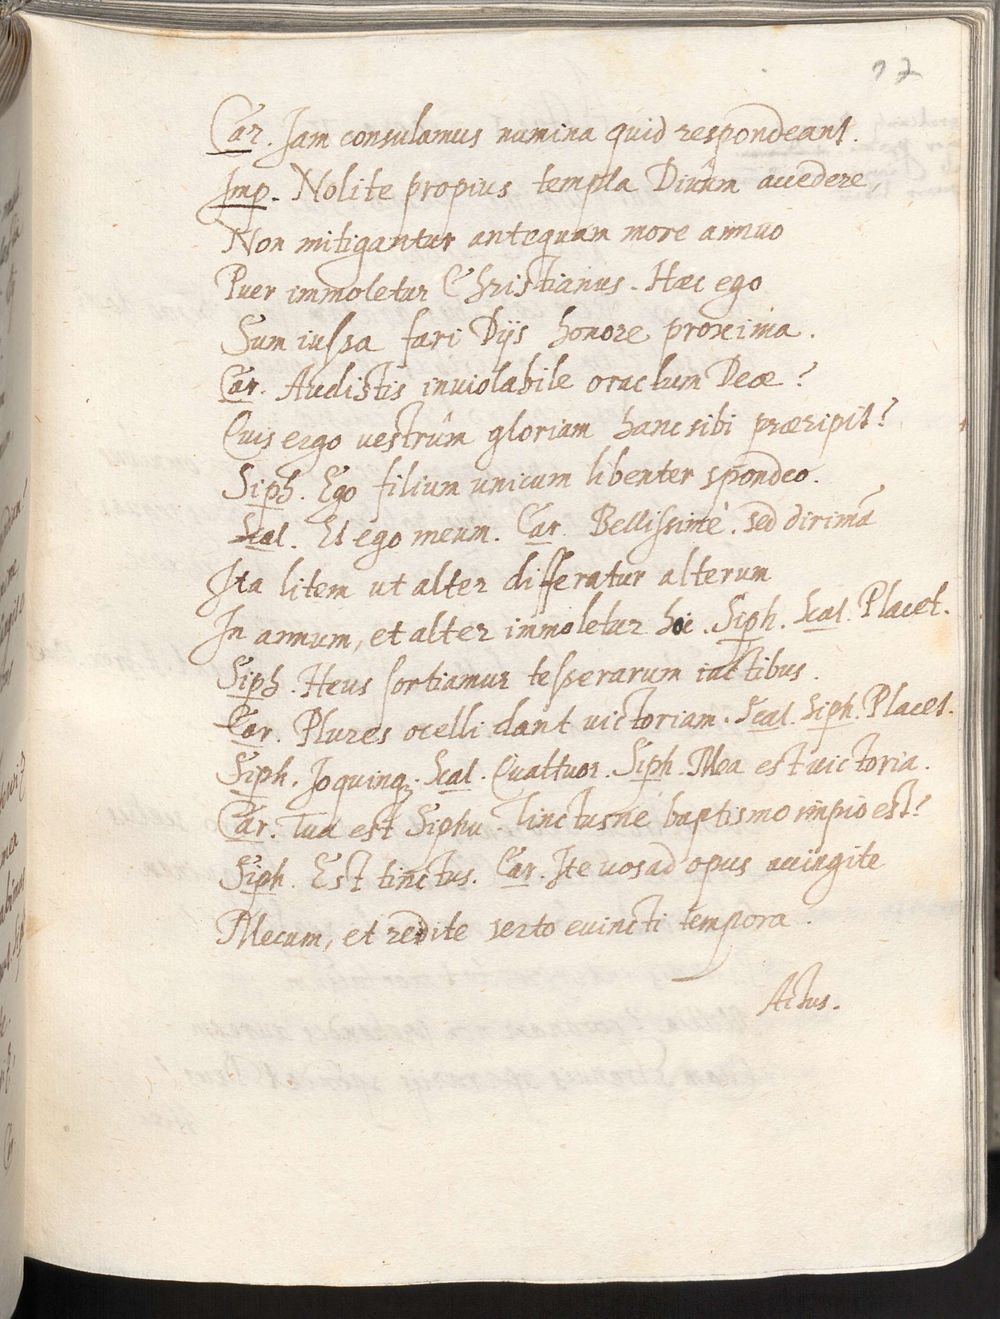 Car. Jam consulamus numina quid respondeant.
Imp. Nolite propius templa Divûm accedere,
Non mitigantur antequam more annuo
Puer immoletur Christianus. Haec ego
Sum iussa fari Dijs honore proxima.
Car. Audistis inviolabile oraclum Deae?
Quis ergo vestrûm gloriam hanc sibi praeripit?
Siph. Ego filium unicum libenter spondeo.
Scal. Et ego meum. Car. Bellissimè. sed dirimā
Ita litem ut alter differatur alterum
In annum, et alter inmoletur hoc. Siph. Scal. Placet.
Siph. Heus sortiamur tesserarum iactibus.
Car. Plures ocelli dant victoriam. Scal. Siph. Placet.
Siph. Jo quinq; Scal. Quattuor. Siph. Mea est victoria.
Car. Tua est Siphu. Tinctusne baptismo impio est?
Siph. Est tinctus. Car. Ite vos ad opus accingite
Mecum, et redite serto evincti tempora.
Actus.